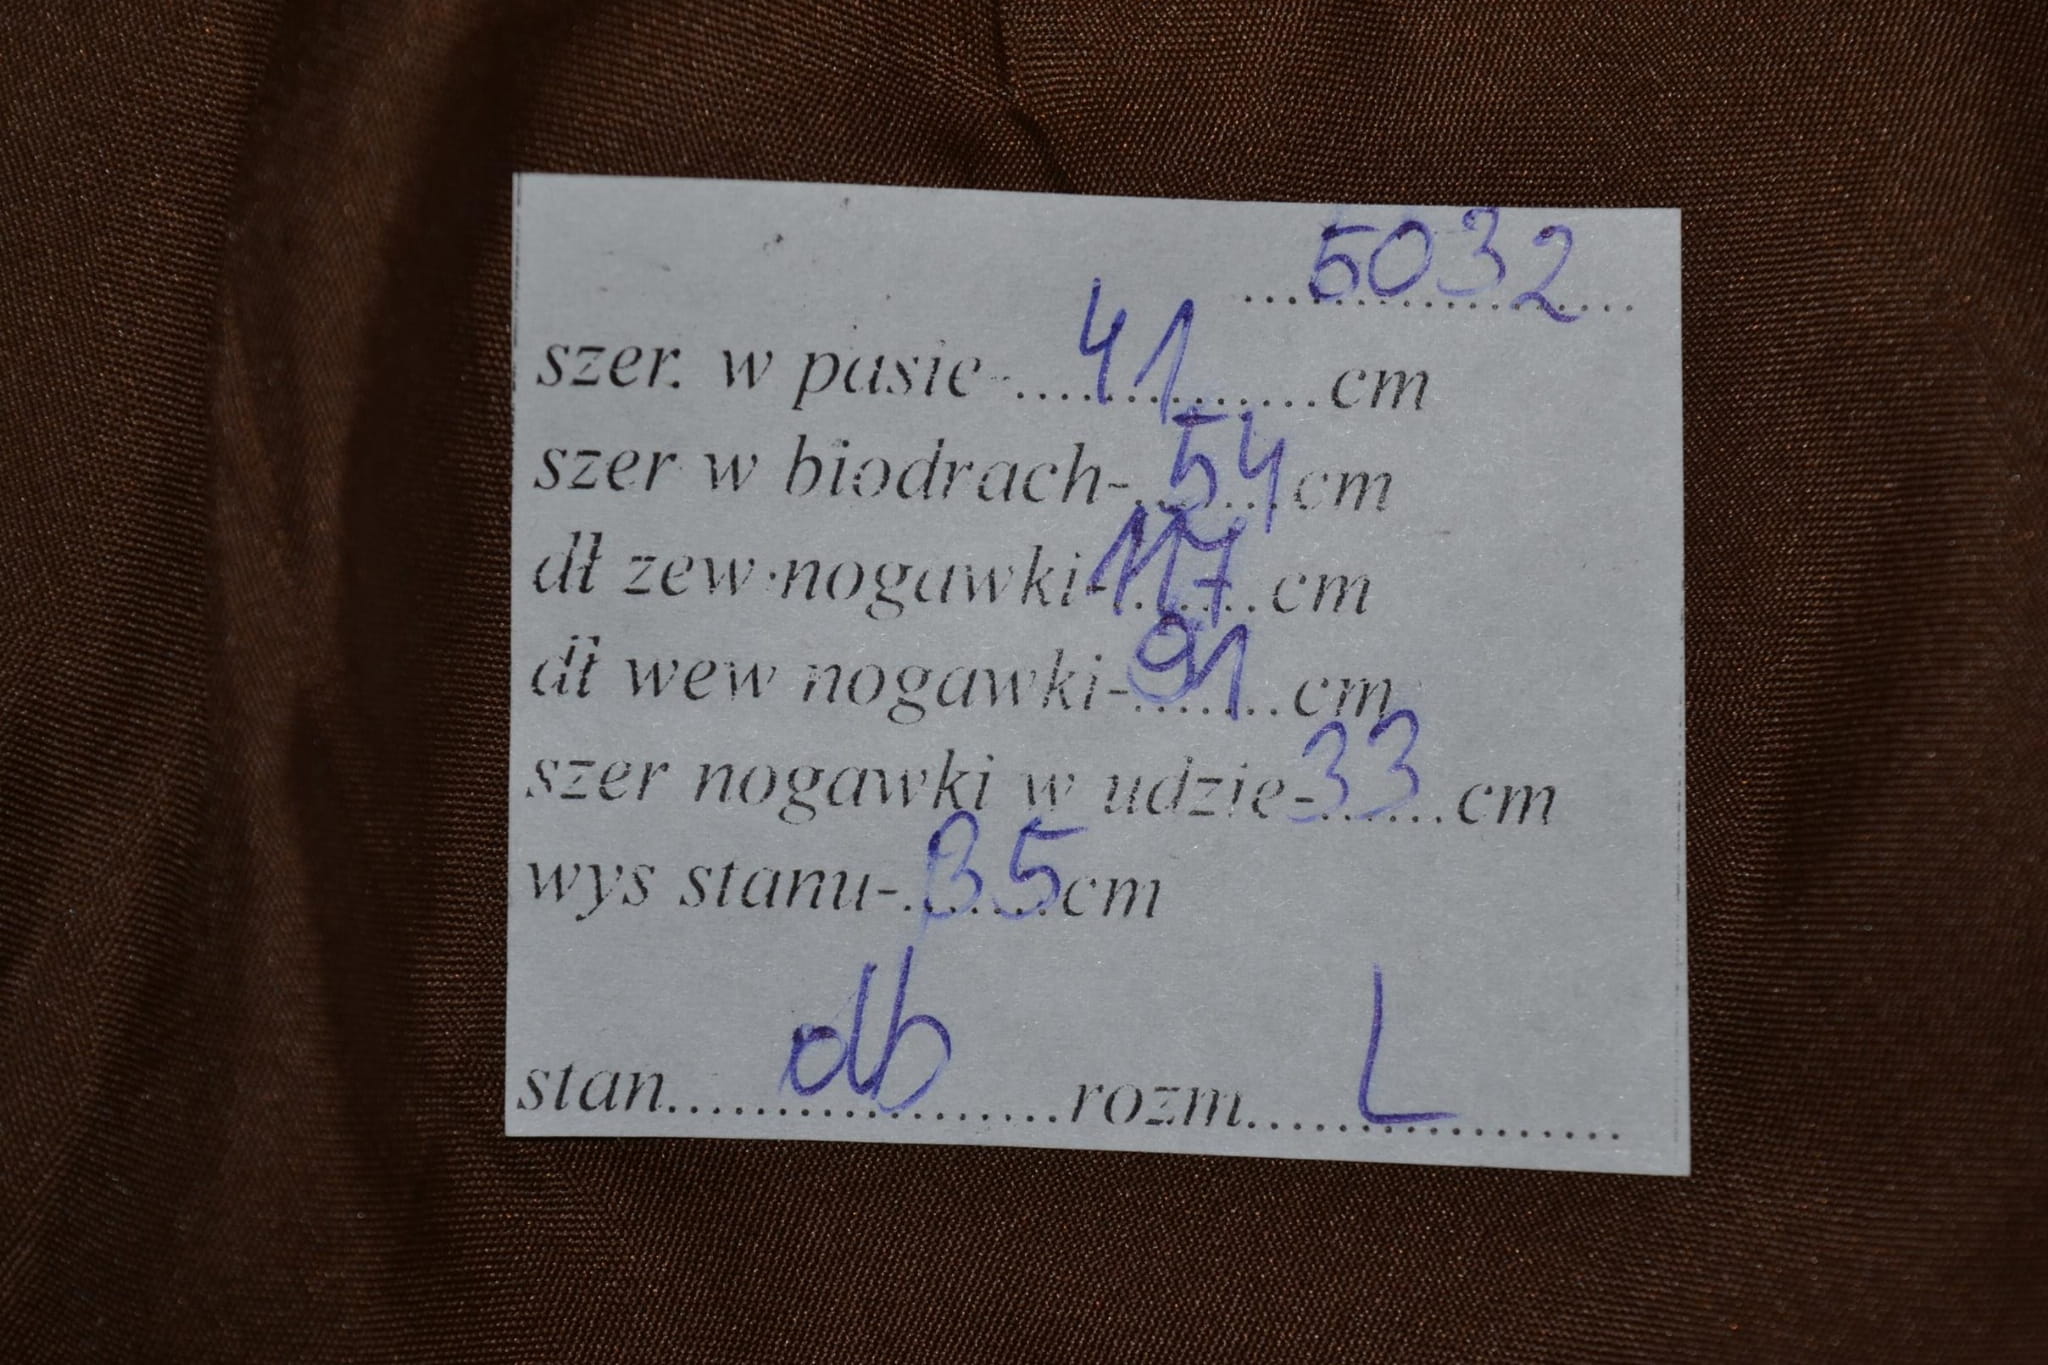 5032
szer. w pasie-...41...cm
szer w biodrach-...54...cm
dł zew nogawki-117...cm
dł wew nogawki-91...cm
szer nogawki w udzie-33...cm
wys stanu-...35cm
stan...db...rozm...L...